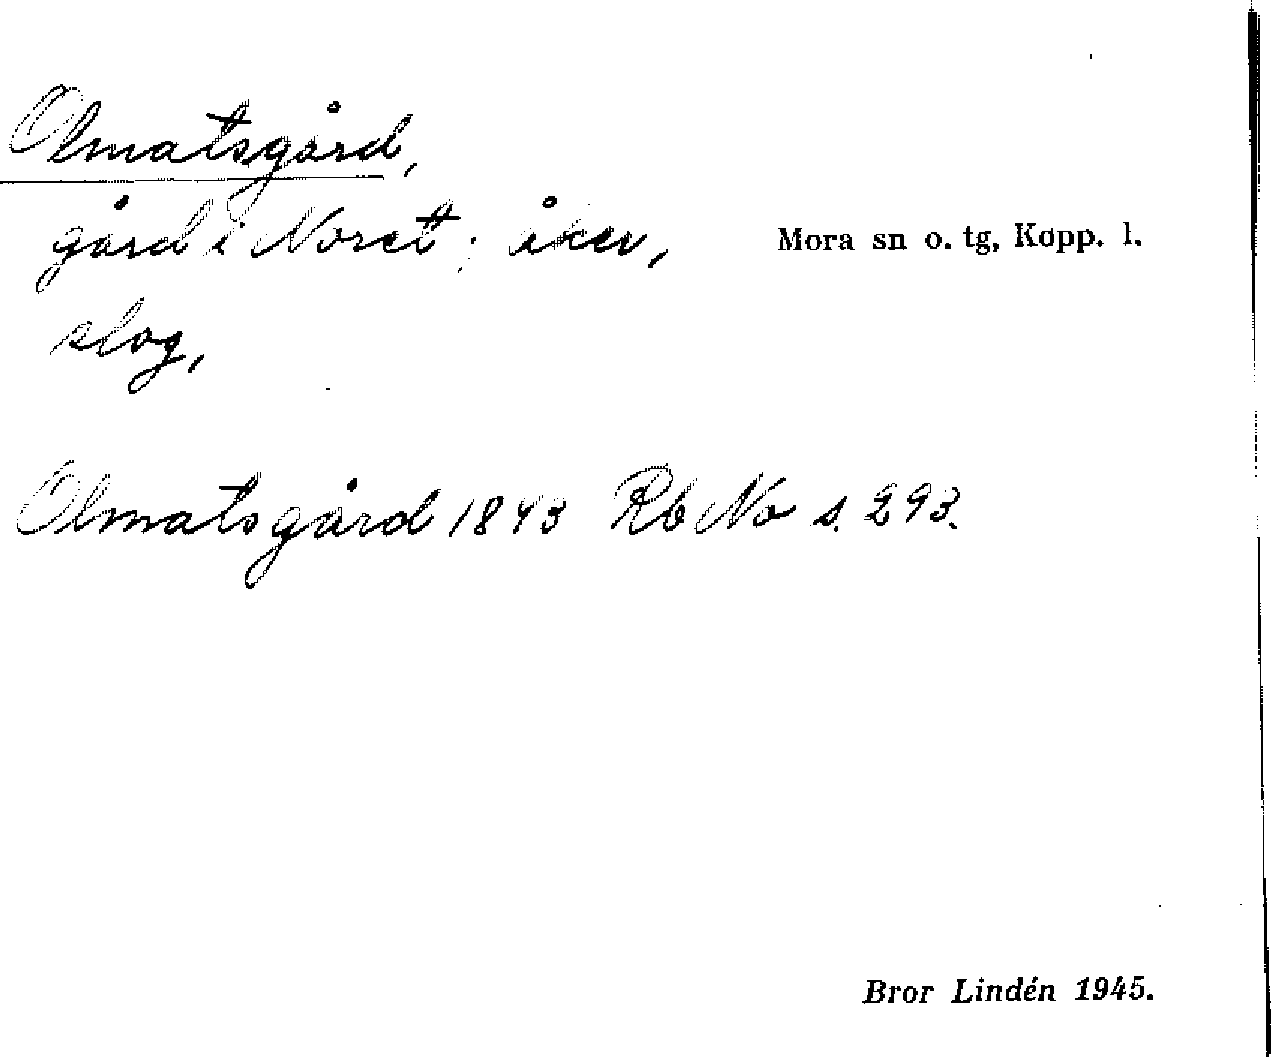 Olmatsgård,
gård i Noret; åker,
slog,
Mora sn o. tg, Kopp. l.
Olmatsgård 1843 Rb No s. 293.
Bror Lindén 1945.